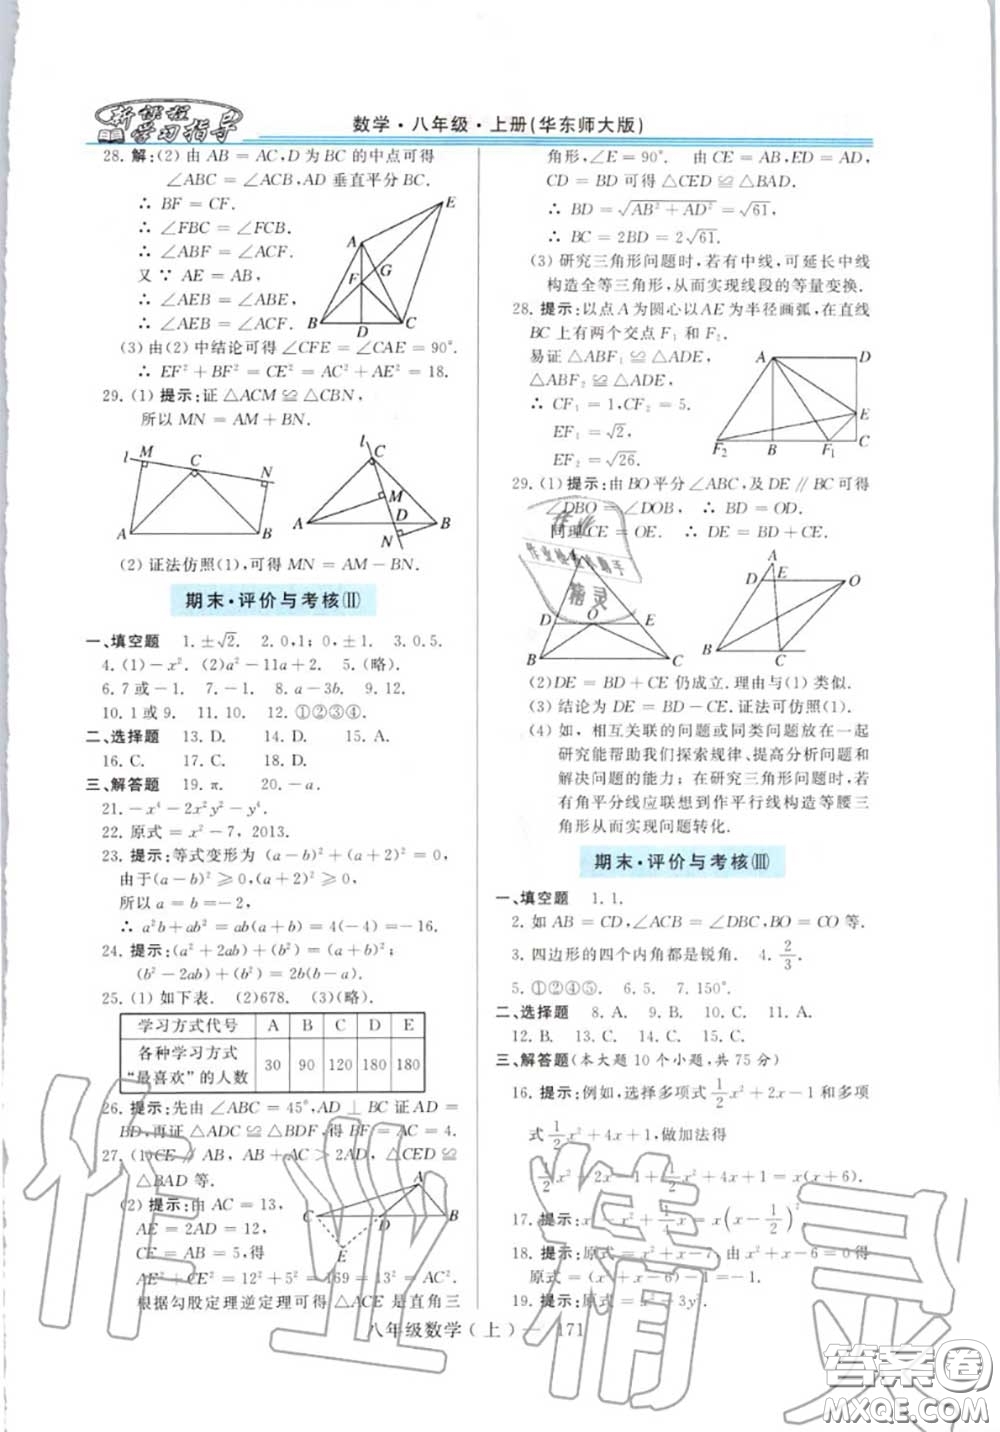 新课程
学习指导
数学·八年级·上册(华东师大版)
28. 解:(2) 由 AB = AC, D 为 BC 的中点可得
∠ABC = ∠ACB, AD 垂直平分 BC.
∴ BF = CF.
∴ ∠FBC = ∠FCB.
∴ ∠ABF = ∠ACF.
又 ∵ AE = AB,
∴ ∠AEB = ∠ABE.
∴ ∠AEB = ∠ACF.
E
A
G
F
B
D
C
(3) 由(2) 中结论可得 ∠CFE = ∠CAE = 90°.
∴ EF² + BF² = CE² = AC² + AE² = 18.
29. (1) 提示:证 △ACM ≌ △CBN,
所以 MN = AM + BN.
l M C N A B
l C M D A B N
(2) 证法仿照(1),可得 MN = AM − BN.
期末·评价与考核(Ⅱ)
一、填空题 1. ±√2. 2. 0,1; 0, ±1. 3. 0.5.
4. (1) −x². (2) a² − 11a + 2. 5. (略).
6. 7 或 −1. 7. −1. 8. a − 3b. 9. 12.
10. 1 或 9. 11. 10. 12. ①②③④.
二、选择题 13. D. 14. D. 15. A.
16. C. 17. A. 18. D.
三、解答题 19. π. 20. −a.
21. −x⁴ − 2x²y² − y⁴.
22. 原式 = x² − 7, 2013.
23. 提示:等式变形为 (a − b)² + (a + 2)² = 0,
由于(a − b)² ≥ 0, (a + 2)² ≥ 0,
所以 a = b = −2.
∴ a²b + ab² = ab(a + b) = 4(−4) = −16.
24. 提示:(a² + 2ab) + (b²) = (a + b)²;
(b² − 2ab) + (a²) = (a − b)².
25. (1) 如下表. (2)678. (3)(略).
学习方式代号 A B C D E
各种学习方式
“最喜欢”的人数 30 90 120 180 180
26. 提示:先由 ∠ABC = 45°, AD ⊥ BC 证 AD =
BD, 再证 △ADC ≌ △BDF, 得 BF = AC = 4.
27. (1) CE ∥ AB, AB + AC > 2AD, △CED ≌
△BAD 等.
(2) 提示:由 AC = 13,
AE = 2AD = 12,
CE = AB = 5, 得
AE² + CE² = 12² + 5² = 169 = 13² = AC².
根据勾股定理逆定理可得 △ACE 是直角三
A
C D B
E
角形, ∠E = 90°. 由 CE = AB, ED = AD,
CD = BD 可得 △CED ≌ △BAD.
∴ BD = √AB² + AD² = √61.
∴ BC = 2BD = 2√61.
(3) 研究三角形问题时,若有中线,可延长中线
构造全等三角形,从而实现线段的等量变换.
28. 提示:以点 A 为圆心以 AE 为半径画弧,在直线
BC 上有两个交点 F₁ 和 F₂.
易证 △ABF₁ ≌ △ADE,
△ABF₂ ≌ △ADE,
∴ CF₁ = 1, CF₂ = 5.
EF₁ = √2,
EF₂ = √26.
A D
E
F₂ B F₁ C
29. (1) 提示:由 BO 平分 ∠ABC, 及 DE ∥ BC 可得
∠DBO = ∠DOB, ∴ BD = OD.
同理 CE = OE. ∴ DE = BD + CE.
A
D O E
B C
A
D E O
B C
(2) DE = BD + CE 仍成立. 理由与(1) 类似.
(3) 结论为 DE = BD − CE. 证法可仿照(1).
(4) 如, 相互关联的问题或同类问题放在一起
研究能帮助我们探索规律、提高分析问题和
解决问题的能力;在研究三角形问题时,若
有角平分线应联想到作平行线构造等腰三
角形从而实现问题转化.
期末·评价与考核(Ⅲ)
一、填空题 1. 1.
2. 如 AB = CD, ∠ACB = ∠DBC, BO = CO 等.
3. 四边形的四个内角都是锐角. 4. 2/3.
5. ①②④⑤. 6. 5. 7. 150°.
二、选择题 8. A. 9. C. 10. C. 11. A.
12. B. 13. C. 14. C. 15. C.
三、解答题(本大题 10 个小题,共 75 分)
16. 提示:例如,选择多项式 1/2 x² + 2x − 1 和多项
式 1/2 x² + 4x + 1, 做加法得
1/2 x² + 2x − 1 + 1/2 x² + 4x + 1 = x(x + 6).
17. 提示:
18. 提示:原式 = x² + x − 7, 由 x² + x − 6 = 0 得
19. 提示:原式 = x² − 3y².
八年级数学(上)— 171
作业
作业检查小助手
精灵
作业精灵
答案圈
MXQE.COM